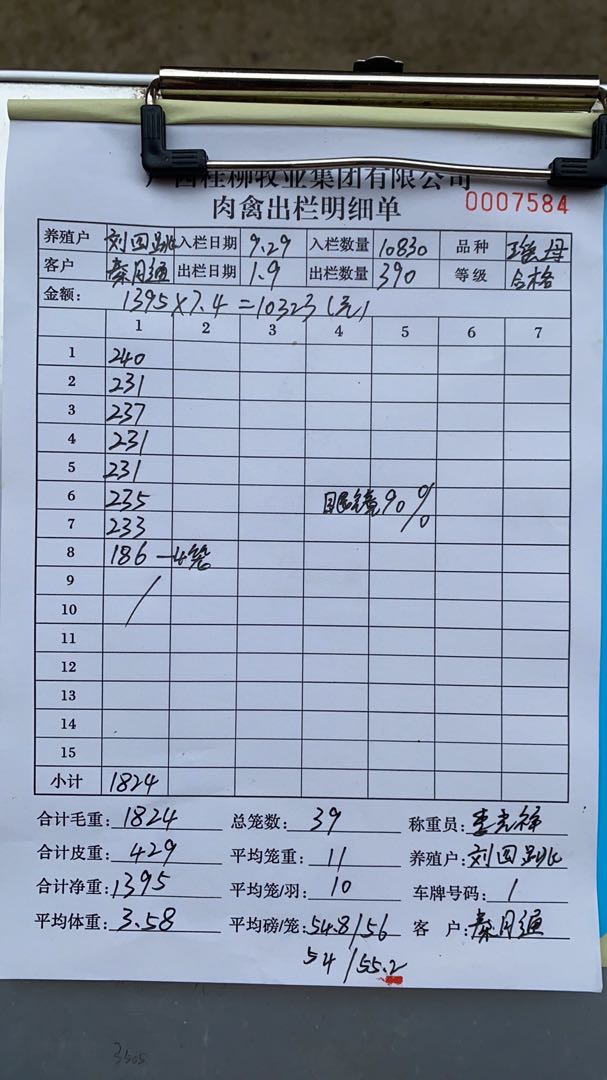 广西桂柳牧业集团有限公司
肉禽出栏明细单 0007584
养殖户 刘四跳 入栏日期 9.29 入栏数量 10830 品种 瑶母
客户 秦月通 出栏日期 1.9 出栏数量 390 等级 合格
金额: 1395×7.4=10323(元)
1 2 3 4 5 6 7
1 240
2 231
3 237
4 231
5 231
6 235 眼镜90%
7 233
8 186—4笼
9
10
11
12
13
14
15
小计 1824
合计毛重: 1824 总笼数: 39 称重员: 李光祥
合计皮重: 429 平均笼重: 11 养殖户: 刘四跳
合计净重: 1395 平均笼/羽: 10 车牌号码: 1
平均体重: 3.58 平均磅/笼: 54.8/56 客 户: 秦月通
54/55.2
3505